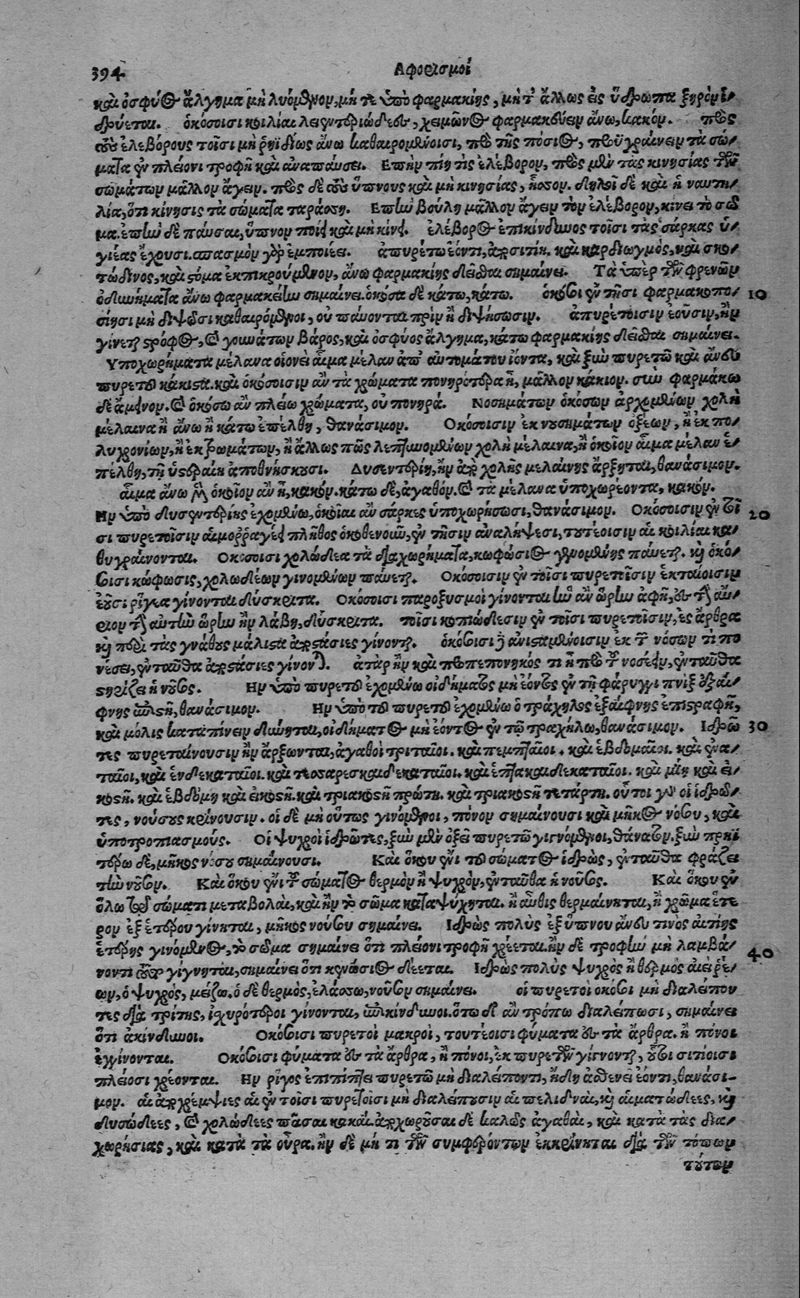 394 Αφορισμοί
καὶ ὀσφύος ἄλγημα μὴ λυόμενον, μήτε ὑπὸ φαρμακίης, μήτ' ἄλλως εἰς ὕδρωπα ξηρὸν ἱ-
δρύεται. ὁκόσοισι κοιλίαι λειεντεριώδεες, χειμῶνος φαρμακεύειν ἄνω, κακόν. πρὸς
τοὺς ἑλεβόρους τοῖσι μὴ ῥηϊδίως ἄνω καθαιρομένοισι, πρὸ τῆς πόσιος, προϋγραίνειν τὰ σώ-
ματα ἐν πλείονι τροφῇ καὶ ἀναπαύσει. Επὴν πίῃ τις ἑλέβορον, πρὸς μὲν τὰς κινησίας τῶν
σωμάτων μᾶλλον ἄγειν. πρὸς δὲ τοὺς ὕπνους καὶ μὴ κινησίας, ἧσσον. δηλοῖ δὲ καὶ ἡ ναυτι-
λία, ὅτι κίνησις τὰ σώματα ταράσσει. Επὴν βούλῃ μᾶλλον ἄγειν τὸν ἑλέβορον, κίνει τὸ σῶ-
μα. ἐπὴν δὲ παῦσαι, ὕπνον ποίει καὶ μὴ κίνει. ἑλέβορος ἐπικίνδυνος τοῖσι τὰς σάρκας ὑ-
γιέας ἔχουσι. σπασμὸν γὰρ ἐμποιέει. ἀπυρέτῳ ἐόντι, ἀποσιτίη. καὶ καρδιωγμὸς, καὶ σκο-
τώδινος, καὶ στόμα ἐκπικρούμενον, ἄνω φαρμακίης δεῖσθαι σημαίνει. Τὰ ὑπὲρ τῶν φρενῶν
ὀδυνήματα ἄνω φαρμακείην σημαίνει. ὁκόσα δὲ κάτω, κάτω. ὁκόσοι ἐν τῇσι φαρμακοπο- 10
σίησι μὴ διψῶσι καθαιρόμενοι, οὐ παύονται πρὶν ἢ διψήσωσιν. ἀπυρέτοισιν ἐοῦσιν, ἢν
γίνεται στρόφος, καὶ γουνάτων βάρος, καὶ ὀσφύος ἄλγημα, κάτω φαρμακίης δεῖσθαι σημαίνει.
Υποχωρήματα μέλανα οἷονεὶ αἷμα μέλαν ἀπ' αὐτομάτου ἰόντα, καὶ ξὺν πυρετῷ καὶ ἄνευ
πυρετοῦ κάκιστα. καὶ ὁκόσοισιν ἂν τὰ χρώματα πονηρότερα ᾖ, μᾶλλον κάκιον. σὺν φαρμάκῳ
δὲ ἄμεινον. καὶ ὁκόσῳ ἂν πλείω χρώματα, οὐ πονηρά. Νοσημάτων ὁκόσων ἀρχομένων χολὴ
μέλαινα ἢ ἄνω ἢ κάτω ἐπέλθῃ, θανάσιμον. Οκόσοισιν ἐκ νουσημάτων ὀξέων, ἢ ἐκ πο-
λυχρονίων, ἢ ἐκ τρωμάτων, ἢ ἄλλως πῶς λεπτυνομένων χολὴ μέλαινα, ἢ ὁκοῖον αἷμα μέλαν ἐ-
πέλθῃ, τῇ ὑστεραίῃ ἀποθνήσκουσι. Δυσεντερίη, ἢν ἀπὸ χολῆς μελαίνης ἄρξηται, θανάσιμον.
αἷμα ἄνω μὲν ὁκοῖον ἂν ᾖ, κακόν. κάτω δὲ, ἀγαθόν. καὶ τὰ μέλανα ὑποχωρέοντα, κακόν.
Ην ὑπὸ δυσεντερίης ἐχομένῳ, ὁκοῖαι ἂν σάρκες ὑποχωρήσωσι, θανάσιμον. Οκόσοισιν ἐν τοῖ- 20
σι πυρετοῖσιν αἱμορραγέει πλῆθος ὁκοθενοῦν, ἐν τῇσιν ἀναλήψεσι, τουτέοισιν αἱ κοιλίαι κα-
θυγραίνονται. Οκόσοισι χολώδεα τὰ διαχωρήματα, κωφώσιος γενομένης παύεται. καὶ ὁκό-
σοισι κώφωσις, χολωδέων γινομένων παύεται. Οκόσοισιν ἐν τοῖσι πυρετοῖσιν ἑκταίοισιν
ἐοῦσι ῥίγεα γίνονται δύσκριτα. Οκόσοισι παροξυσμοὶ γίνονται ἣν ἂν ὥρην ἀφῇ, ἐς τὴν αὔ-
ριον τὴν αὐτὴν ὥρην ἢν λάβῃ, δύσκριτα. τοῖσι κοπιώδεσιν ἐν τοῖσι πυρετοῖσιν, ἐς ἄρθρα
καὶ παρὰ τὰς γνάθους μάλιστα ἀποστάσιες γίνονται. ὁκόσοισι δὲ ἀνισταμένοισιν ἐκ τῶν νόσων τι πο-
νέσει, ἐνταῦθα ἀποστάσιες γίνονται. ἀτὰρ ἢν καὶ προπεπονηκός τι ᾖ πρὸ τοῦ νοσέειν, ἐνταῦθα
στηρίζει ἡ νοῦσος. Ην ὑπὸ πυρετοῦ ἐχομένῳ οἰδήματος μὴ ἐόντος ἐν τῇ φάρυγγι πνὶξ ἐξαί-
φνης ἐπιστῇ, θανάσιμον. Ην ὑπὸ τοῦ πυρετοῦ ἐχομένῳ ὁ τράχηλος ἐξαίφνης ἐπιστραφῇ,
καὶ μόλις καταπίνειν δύνηται, οἰδήματος μὴ ἐόντος ἐν τῷ τραχήλῳ, θανάσιμον. Ιδρῶ- 30
τες πυρεταίνουσιν ἢν ἄρξωνται, ἀγαθοὶ τριταῖοι. καὶ πεμπταῖοι. καὶ ἑβδομαῖοι. καὶ ἐνα-
ταῖοι, καὶ ἑνδεκαταῖοι. καὶ τεσσαρεσκαιδεκαταῖοι. καὶ ἑπτακαιδεκαταῖοι. καὶ μιῇ καὶ εἰ-
κοστῇ. καὶ ἑβδόμῃ καὶ εἰκοστῇ. καὶ τριακοστῇ πρώτῃ. καὶ τριακοστῇ τετάρτῃ. οὗτοι γὰρ οἱ ἱδρῶ-
τες, νούσους κρίνουσιν. οἱ δὲ μὴ οὕτως γινόμενοι, πόνον σημαίνουσι καὶ μῆκος νούσου, καὶ
ὑποτροπιασμούς. Οἱ ψυχροὶ ἱδρῶτες, ξὺν μὲν ὀξεῖ πυρετῷ γιγνόμενοι, θάνατον. ξὺν πρηϋ-
τέρῳ δὲ, μῆκος νούσου σημαίνουσι. Καὶ ὅκου ἔνι τοῦ σώματος ἱδρὼς, ἐνταῦθα φράζει
τὴν νοῦσον. Καὶ ὅκου ἔνι τοῦ σώματος θερμὸν ἢ ψυχρὸν, ἐνταῦθα ἡ νοῦσος. Καὶ ὅκου ἐν
ὅλῳ τῷ σώματι μεταβολαὶ, καὶ ἢν τὸ σῶμα καταψύχηται, ἢ αὖθις θερμαίνηται, ἢ χρῶμα ἕτε-
ρον ἐξ ἑτέρου γίνηται, μῆκος νούσου σημαίνει. Ιδρὼς πολὺς ἐξ ὕπνου ἄνευ τινὸς αἰτίης
ἑτέρης γινόμενος, τὸ σῶμα σημαίνει ὅτι πλείονι τροφῇ χρέεται. ἢν δὲ τροφὴν μὴ λαμβά- 40
νοντι τοῦτο γίγνηται, σημαίνει ὅτι κενώσιος δέεται. Ιδρὼς πολὺς ψυχρὸς ἢ θερμὸς αἰεὶ ῥέ-
ων, ὁ ψυχρὸς, μείζω. ὁ δὲ θερμὸς, ἐλάσσω, νοῦσον σημαίνει. οἱ πυρετοὶ ὁκόσοι μὴ διαλείπον-
τες διὰ τρίτης, ἰσχυρότεροι γίνονται, ἐπικίνδυνοι. ὅτῳ δ' ἂν τρόπῳ διαλείπωσι, σημαίνει
ὅτι ἀκίνδυνοι. Οκόσοισι πυρετοὶ μακροὶ, τουτέοισι φύματα ἐς τὰ ἄρθρα. ἢ πόνοι
ἐγγίνονται. Οκόσοισι φύματα ἐς τὰ ἄρθρα, ἢ πόνοι, ἐκ πυρετῶν γίγνονται, οὗτοι σιτίοισι
πλείοσι χρέονται. Ην ῥῖγος ἐπιπίπτει πυρετῷ μὴ διαλείποντι, ἤδη ἀσθενεῖ ἐόντι, θανάσι-
μον. αἱ ἀποχρέμψιες αἱ ἐν τοῖσι πυρετοῖσι μὴ διαλείπουσιν αἱ πελιδναὶ, καὶ αἱματώδεες, καὶ
δυσώδεες, καὶ χολώδεες πᾶσαι κακαί. ἀποχωροῦσαι δὲ καλῶς ἀγαθαὶ, καὶ κατὰ τὰς δια-
χωρήσιας, καὶ κατὰ τὰ οὖρα. ἢν δὲ μή τι τῶν συμφερόντων ἐκκρίνηται διὰ τῶν τόπων
τούτων